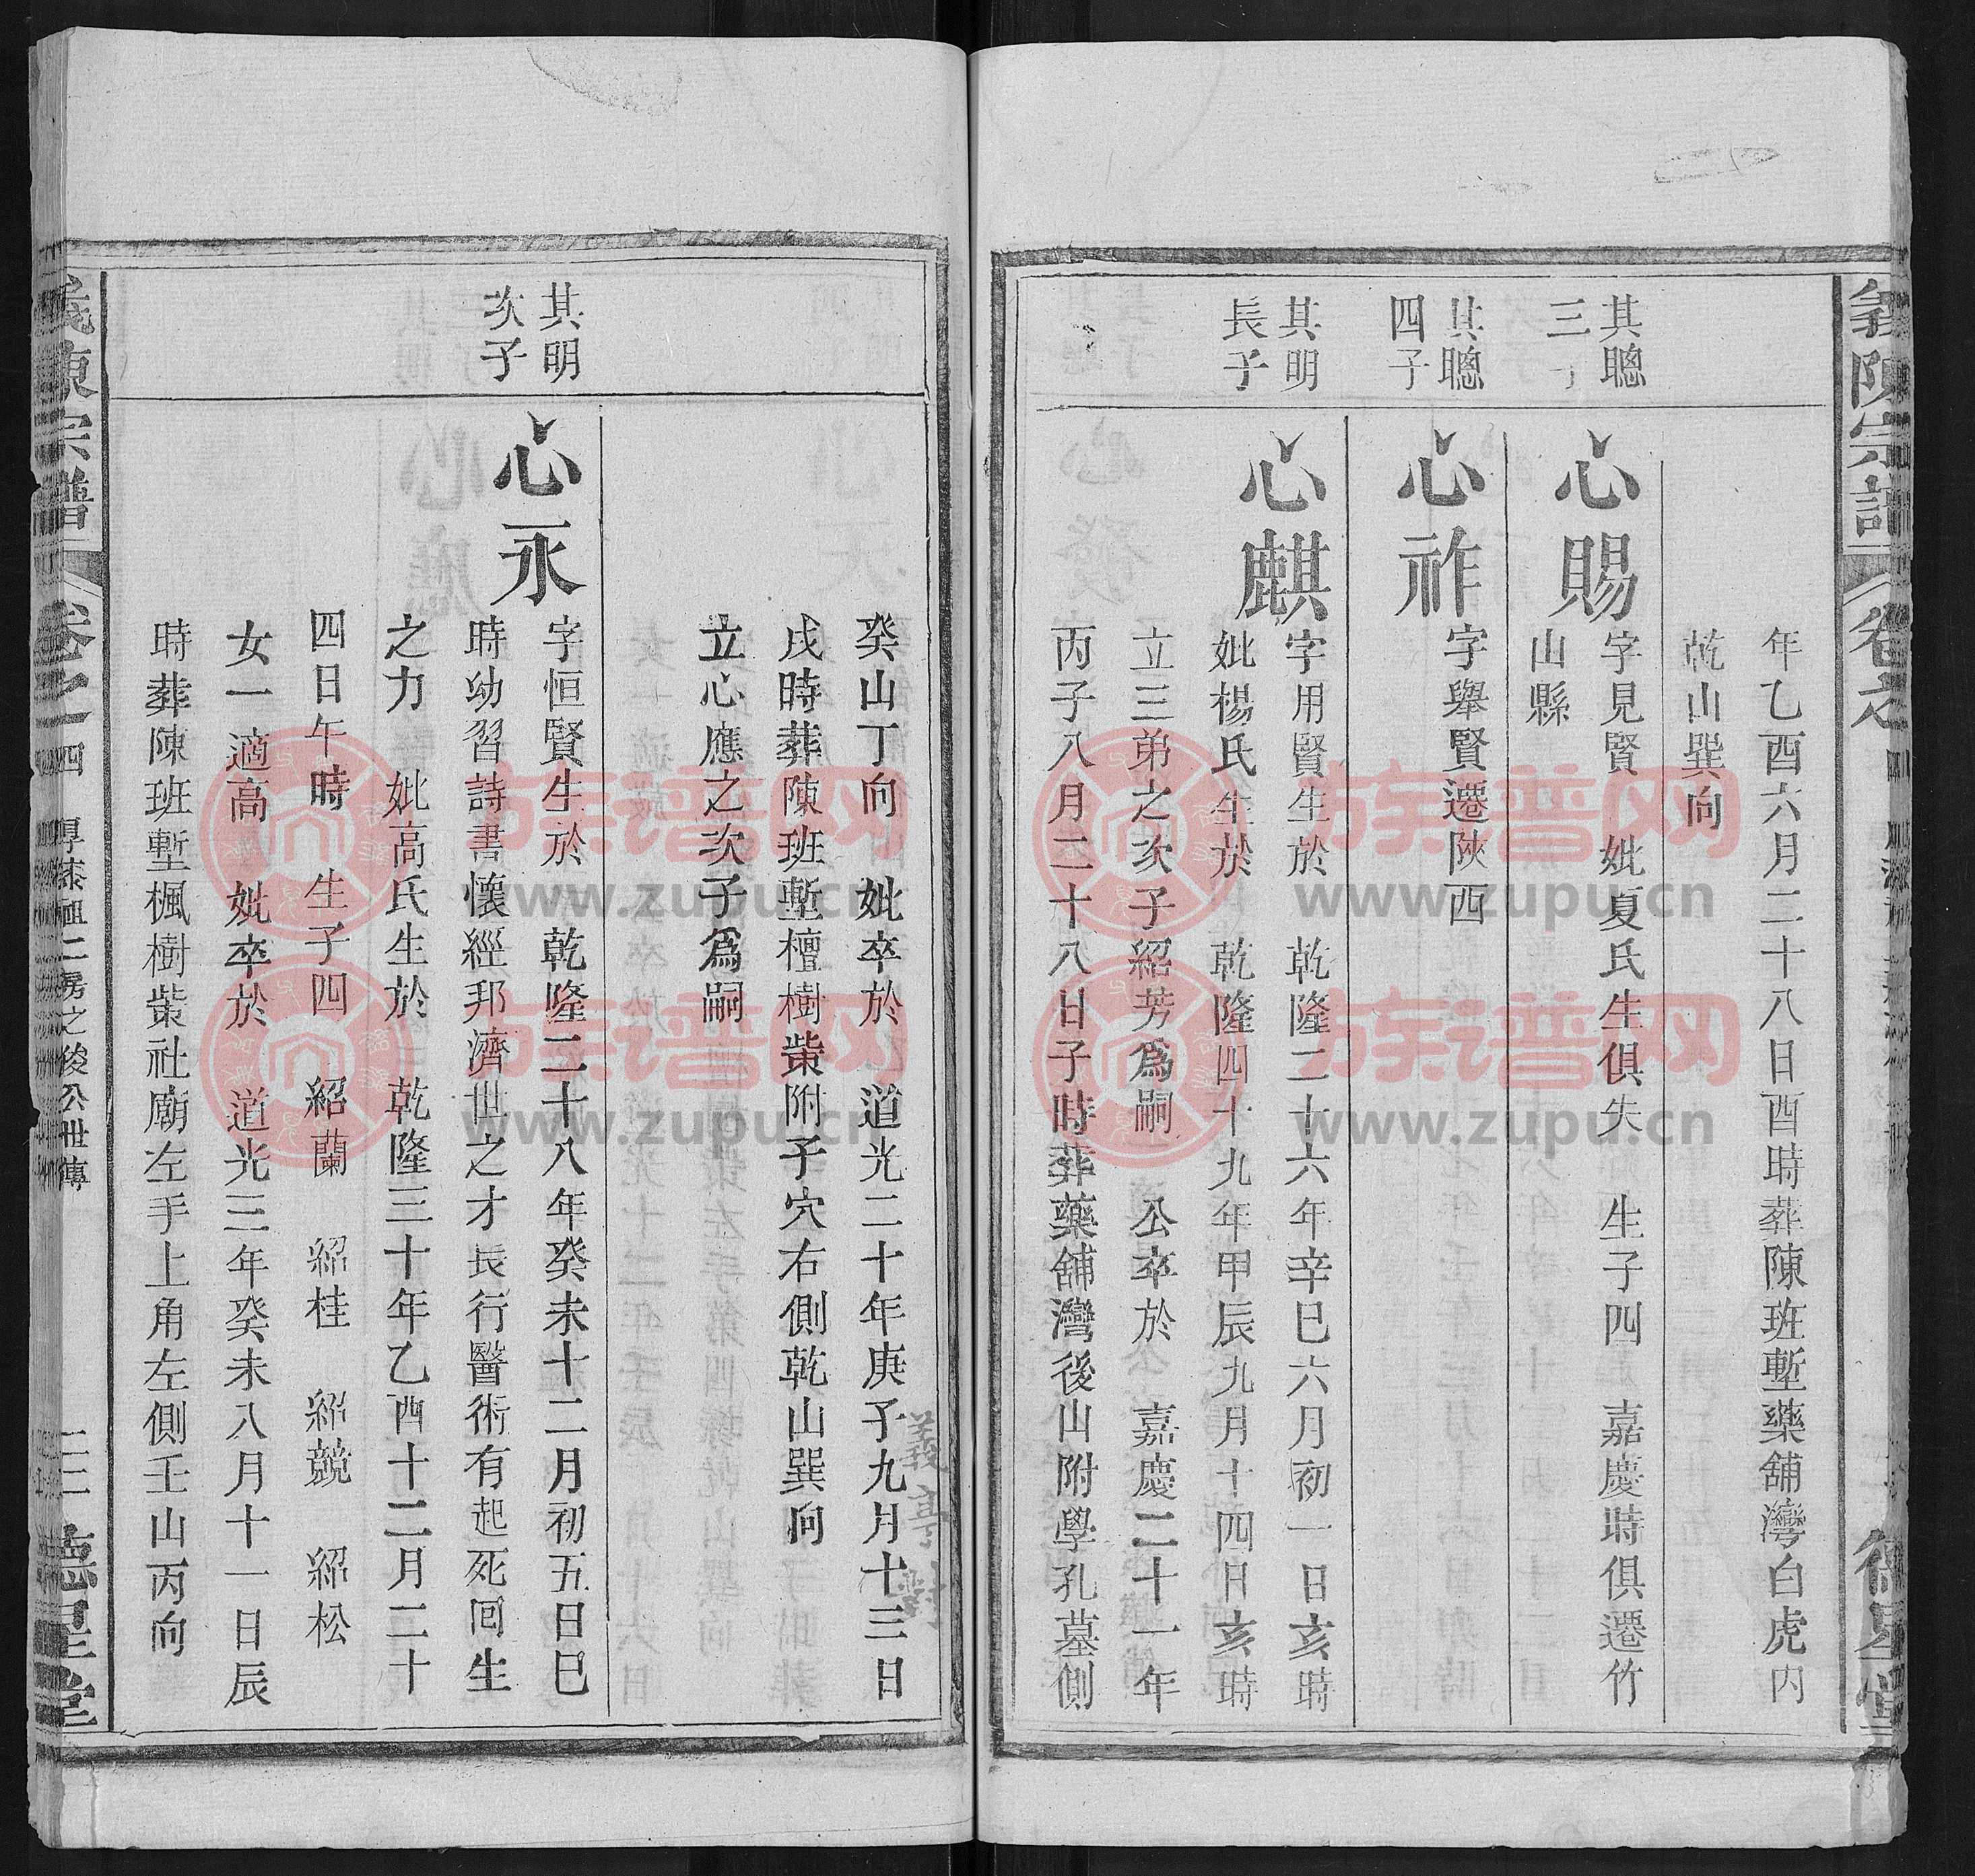 義陳宗譜
卷之
四
德星堂
年乙酉六月二十八日酉時葬陳班塹藥舖灣白虎内
乾山巽向
其聰
三
心賜
字見賢 妣夏氏生俱失 生子四 嘉慶時俱遷竹
山縣
其聰
四子
心祚
字舉賢遷陝西
其明
長子
心麒
字用賢生於 乾隆二十六年辛巳六月初一日亥時
妣楊氏生於 乾隆四十九年甲辰九月十四日亥時
立三弟之次子紹芳爲嗣 公卒於 嘉慶二十一年
丙子八月二十八日子時葬藥舖灣後山附學孔墓側
癸山丁向 妣卒於 道光二十年庚子九月十三日
戌時葬陳班塹檀樹棠附子穴右側乾山巽向
立心應之次子爲嗣
其明
次子
心永
字恒賢生於 乾隆二十八年癸未十二月初五日巳
時幼習詩書懷經邦濟世之才長行醫術有起死回生
之力 妣高氏生於 乾隆三十年乙酉十二月二十
四日午時 生子四 紹蘭 紹桂 紹競 紹松
女一適高 妣卒於 道光三年癸未八月十一日辰
時葬陳班塹楓樹棠社廟左手上角左側壬山丙向
義陳宗譜
卷之
四
厚漆祖二房之後公世傳
二二
德星堂
族谱网
www.zupu.cn
族谱网
www.zupu.cn
族谱网
www.zupu.cn
族谱网
www.zupu.cn